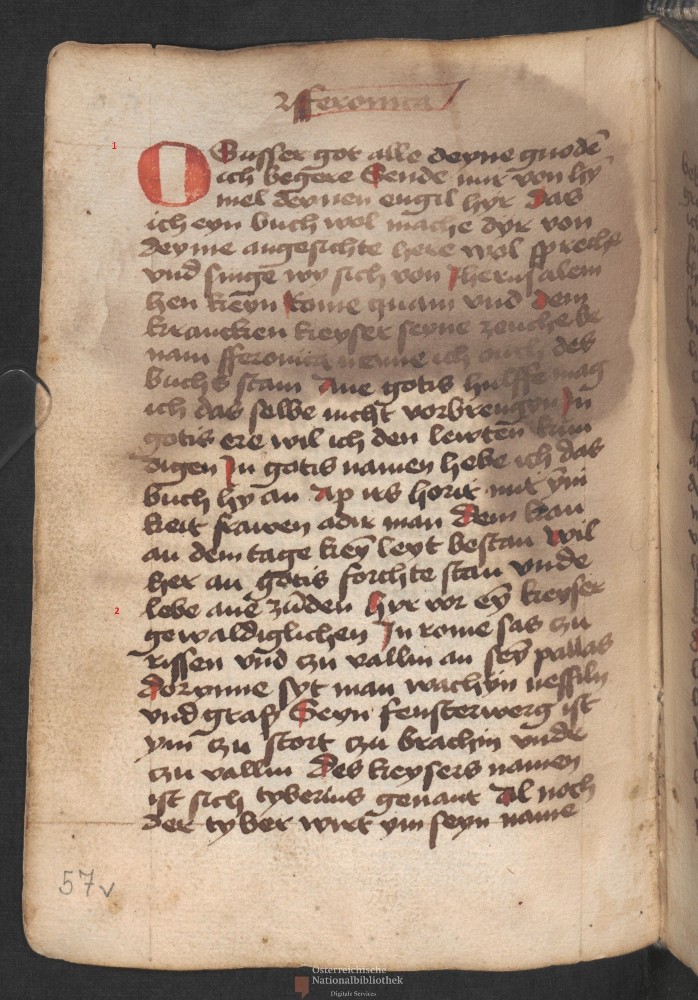 fferonica
1
O Gusser got alle deyne gnodē
ich begere Sende mir von hÿ
mel deynen engil hyr Das
ich eyn buch wol mache dyr von
deyme angesichte here wol spreche
vnd singe wy sich von Jherusalem
hen keyn Rome quam vnd dem
krancken keyser seyne zeuche be
nam fferonica nenne ich auch des
buchs stam Ane gotis hulffe mag
ich das selbe nicht vorbrengyn In
gotis ere wil ich den lewten kun
digen In gotis namen hebe ich das
buch hy an Ap irs horit mit ÿm
keit frawen adir man Dem kan
an dem tage keÿ leyt bestan wil
her an gotis forchte stan vnde
2
lebe ane zůden Hyr vor eÿ keyser
gewaldiglichen In rome sas czu
rissen vnd czu vallin an seÿ pallas
Dorynne syt man wachsyn nessiln
vnd graß Seyn fensterwerg ist
ym czu stort czu brachin vnde
czu vallin Des keysers namen
ist sich tyberius genant Al noch
der tyber wirt ym seyn name
57v
Österreichische
Nationalbibliothek
Digitale Services